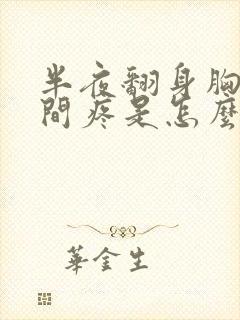 半夜翻身胸
間疼是怎麼
華金生